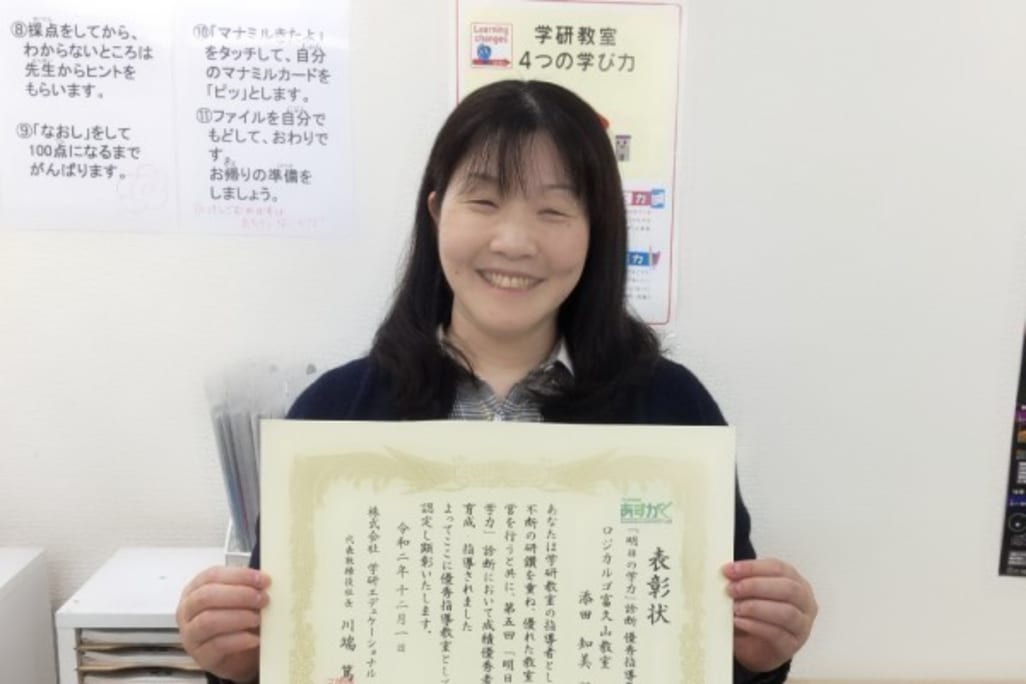 ⑧採点をしてから、
わからないところは
先生からヒントを
もらいます。
⑨「なおし」をして
100点になるまで
がんばります。
⑩「マナミルきたよ」
をタッチして、自分
のマナミルカードを
「ピッ」とします。
⑪ファイルを自分で
もどして、おわりで
す
お帰りの準備を
しましょう。
Learning
changes
学研教室
4つの学び力
力
力
あすがく
表彰状
「明日の学力」診断 優秀指導
ロジカルゴ富久山教室
添田 知美
あなたは学研教室の指導者とし
不断の研鑽を重ね、優れた教室
営を行うと共に、第五回「明日
学力」診断において成績優秀者
育成 指導されました
よってここに優秀指導教室として
認定し顕彰いたします。
令和二年十二月一日
株式会社 学研エデュケーショナル
代表取締役社長 川端 篤